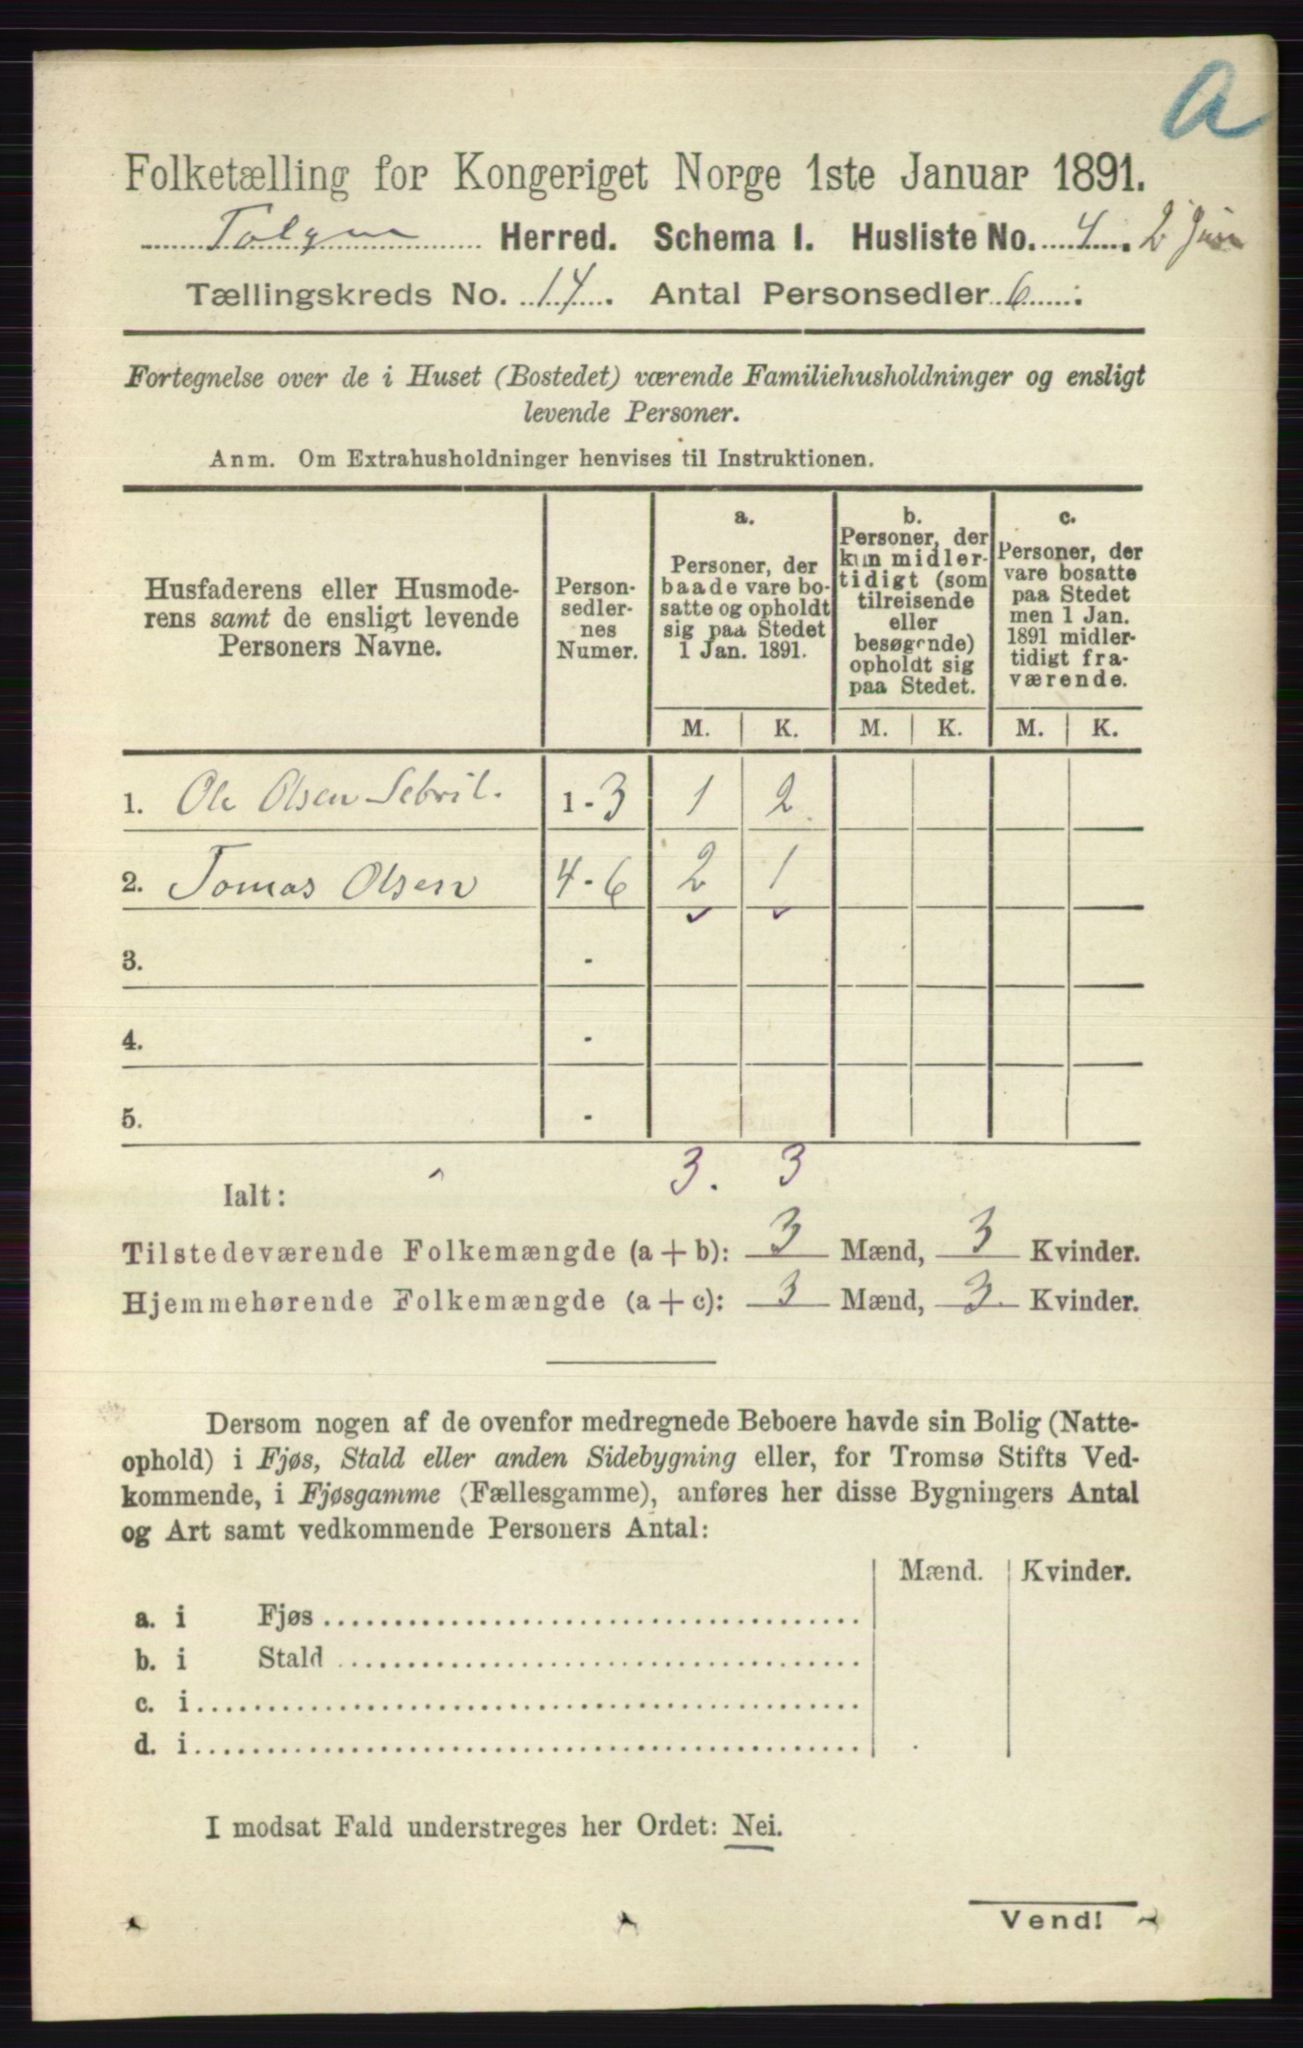 a
Folketælling for Kongeriget Norge 1ste Januar 1891.
Tolgen Herred. Schema I. Husliste No. 4. 2
Tællingskreds No. 14. Antal Personsedler 6.
Fortegnelse over de i Huset (Bostedet) værende Familiehusholdninger og ensligt
levende Personer.
Anm. Om Extrahusholdninger henvises til Instruktionen.
Husfaderens eller Husmode-
rens samt de ensligt levende
Personers Navne.
Person-
sedler-
nes
Numer.
a.
Personer, der
baade vare bo-
satte og opholdt
sig paa Stedet
1 Jan. 1891.
b.
Personer, der
kun midler-
tidigt (som
tilreisende
eller
besøgende)
opholdt sig
paa Stedet.
c.
Personer, der
vare bosatte
paa Stedet
men 1 Jan.
1891 midler-
tidigt fra-
værende.
M. K. M. K. M. K.
1. Ole Olsen 1-3 1 2
2. Tomas Olsen 4-6 2 1
3. -
4. -
5. -
3. 3
Ialt:
Tilstedeværende Folkemængde (a + b): 3 Mænd, 3 Kvinder.
Hjemmehørende Folkemængde (a + c): 3 Mænd, 3. Kvinder.
Dersom nogen af de ovenfor medregnede Beboere havde sin Bolig (Natte-
ophold) i Fjøs, Stald eller anden Sidebygning eller, for Tromsø Stifts Ved-
kommende, i Fjøsgamme (Fællesgamme), anføres her disse Bygningers Antal
og Art samt vedkommende Personers Antal:
Mænd. Kvinder.
a. i Fjøs
b. i Stald
c. i
d. i
I modsat Fald understreges her Ordet: Nei.
Vend!